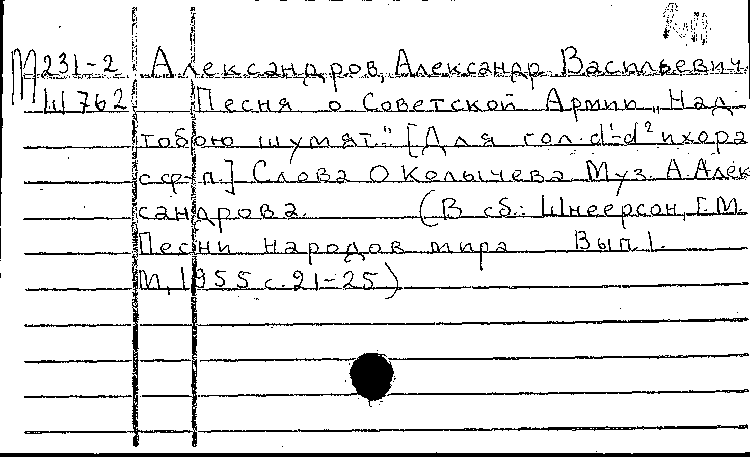 М231-2 Александров, Александр Васильевич
Ш762 Песня о Советской Армии „Над
тобою шумят." [Для гол. d¹-d² и хора
с ф-п.] Слова О Колычева Муз. А. Алек
сандрова. (В сб.: Шнеерсон, Г.М.
Песни народов мира Вып 1.
М, 1955 с. 21-25)